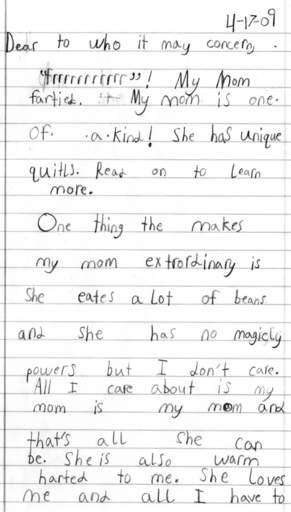 4-17-09
Dear to who it may concern,
"frrrrrrrrrrr"! My Mom
farticd. My mom is one.
Of. .a.kind! She has unique
quitls. Read on to Learn
more.
One thing the makes
my mom extrordinary is
She eates a Lot of beans
and She has no magicly
powers but I don't care.
All I care about is my
mom is my mom and
that's all She can
be. She is also warm
harted to me. She Loves
me and all I have to